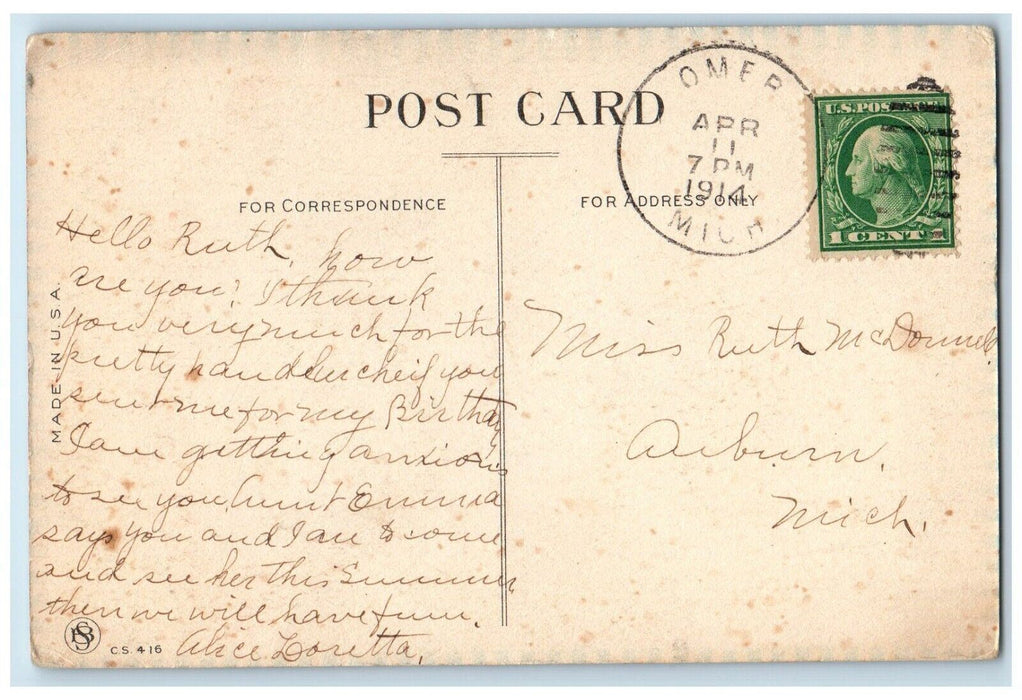 POST CARD
OMER
APR
11
7 PM
1914
MICH
U.S. POSTAGE
1 CENT 1
FOR CORRESPONDENCE
FOR ADDRESS ONLY
Hello Ruth, how
are you? I thank
you very much for the
pretty handkercheif you
sent me for my Birthday
I am getting anxious
to see you Aunt Emma
says you and I are to come
and see her this Summer
then we will have fun.
Alice Loretta,
Miss Ruth McDonnell
Auburn,
Mich.
MADE IN U.S.A.
C.S. 416